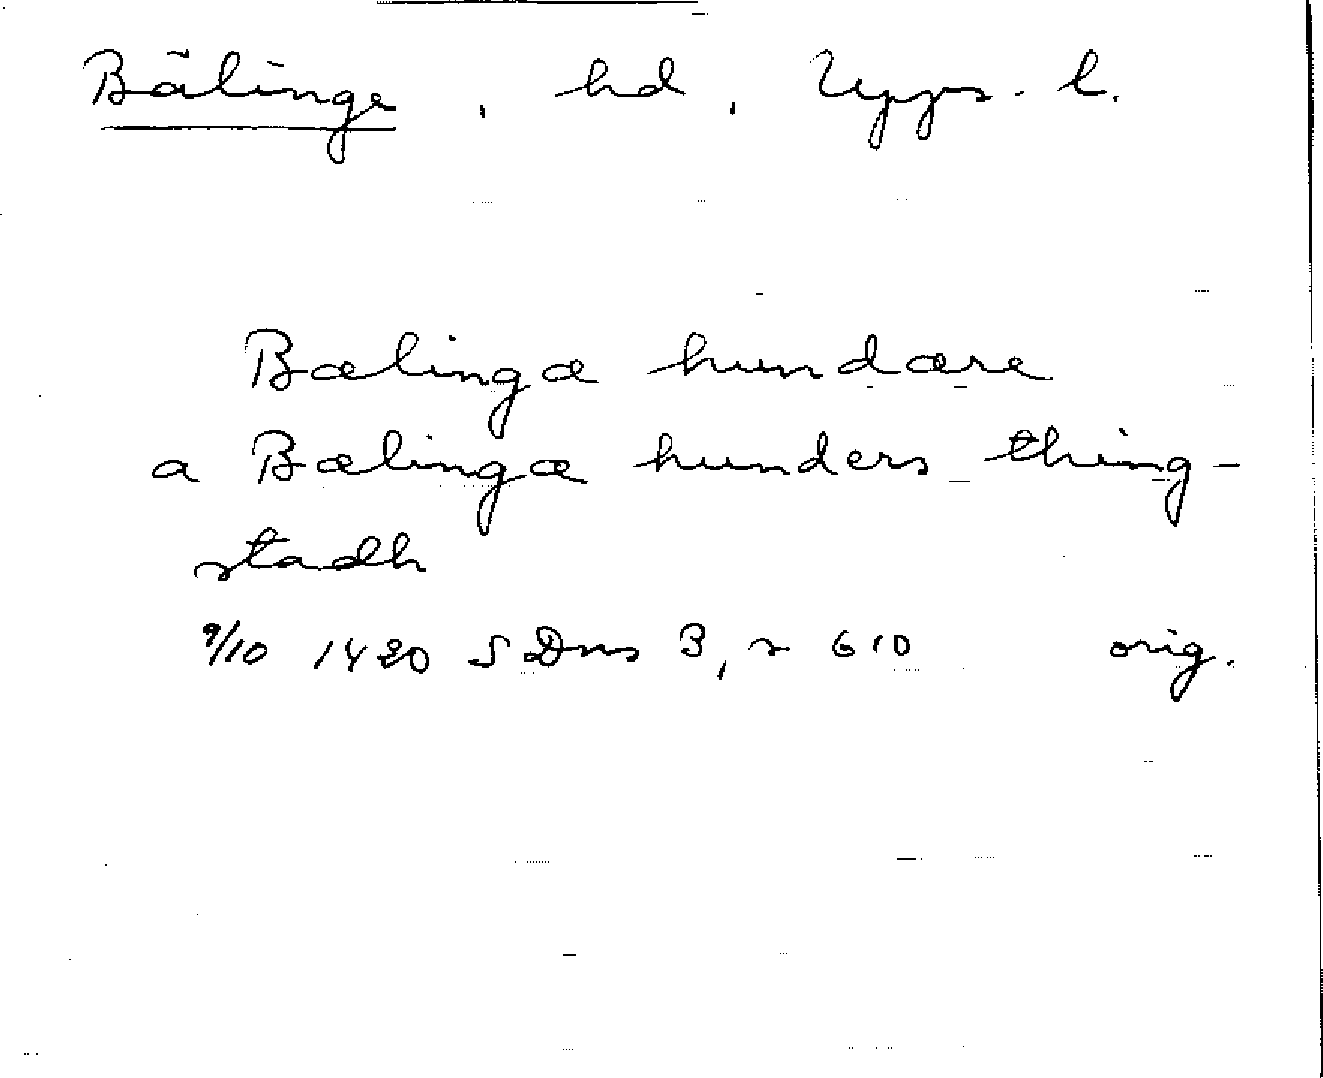 Bälinge, hd, Upps. l.
Bælingæ hundære
a Bælingæ hunders thing-
stadh
9/10 1420 SDns 3, s 610 orig.